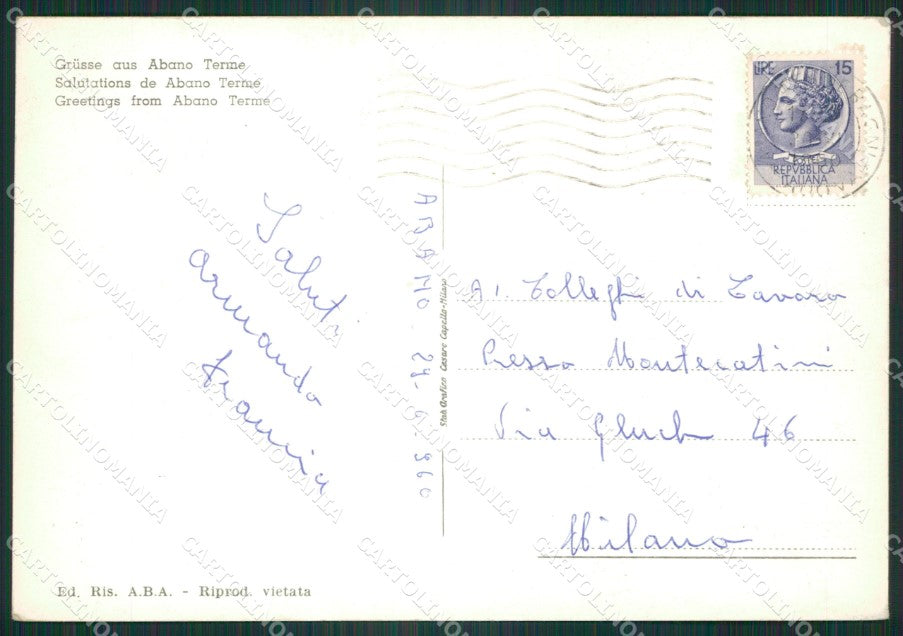 Grüsse aus Abano Terme
Salutations de Abano Terme
Greetings from Abano Terme
LIRE 15
POSTE
REPVBBLICA
ITALIANA
Saluti
Armando
ABANO 27.6.960
Stab. Grafico Cesare Capello-Milano
Ai Colleghi di Lavoro
Presso Montecatini
Via Gluck 46
Milano
Ed. Ris. A.B.A. - Riprod. vietata
CARTOLINOMANIA